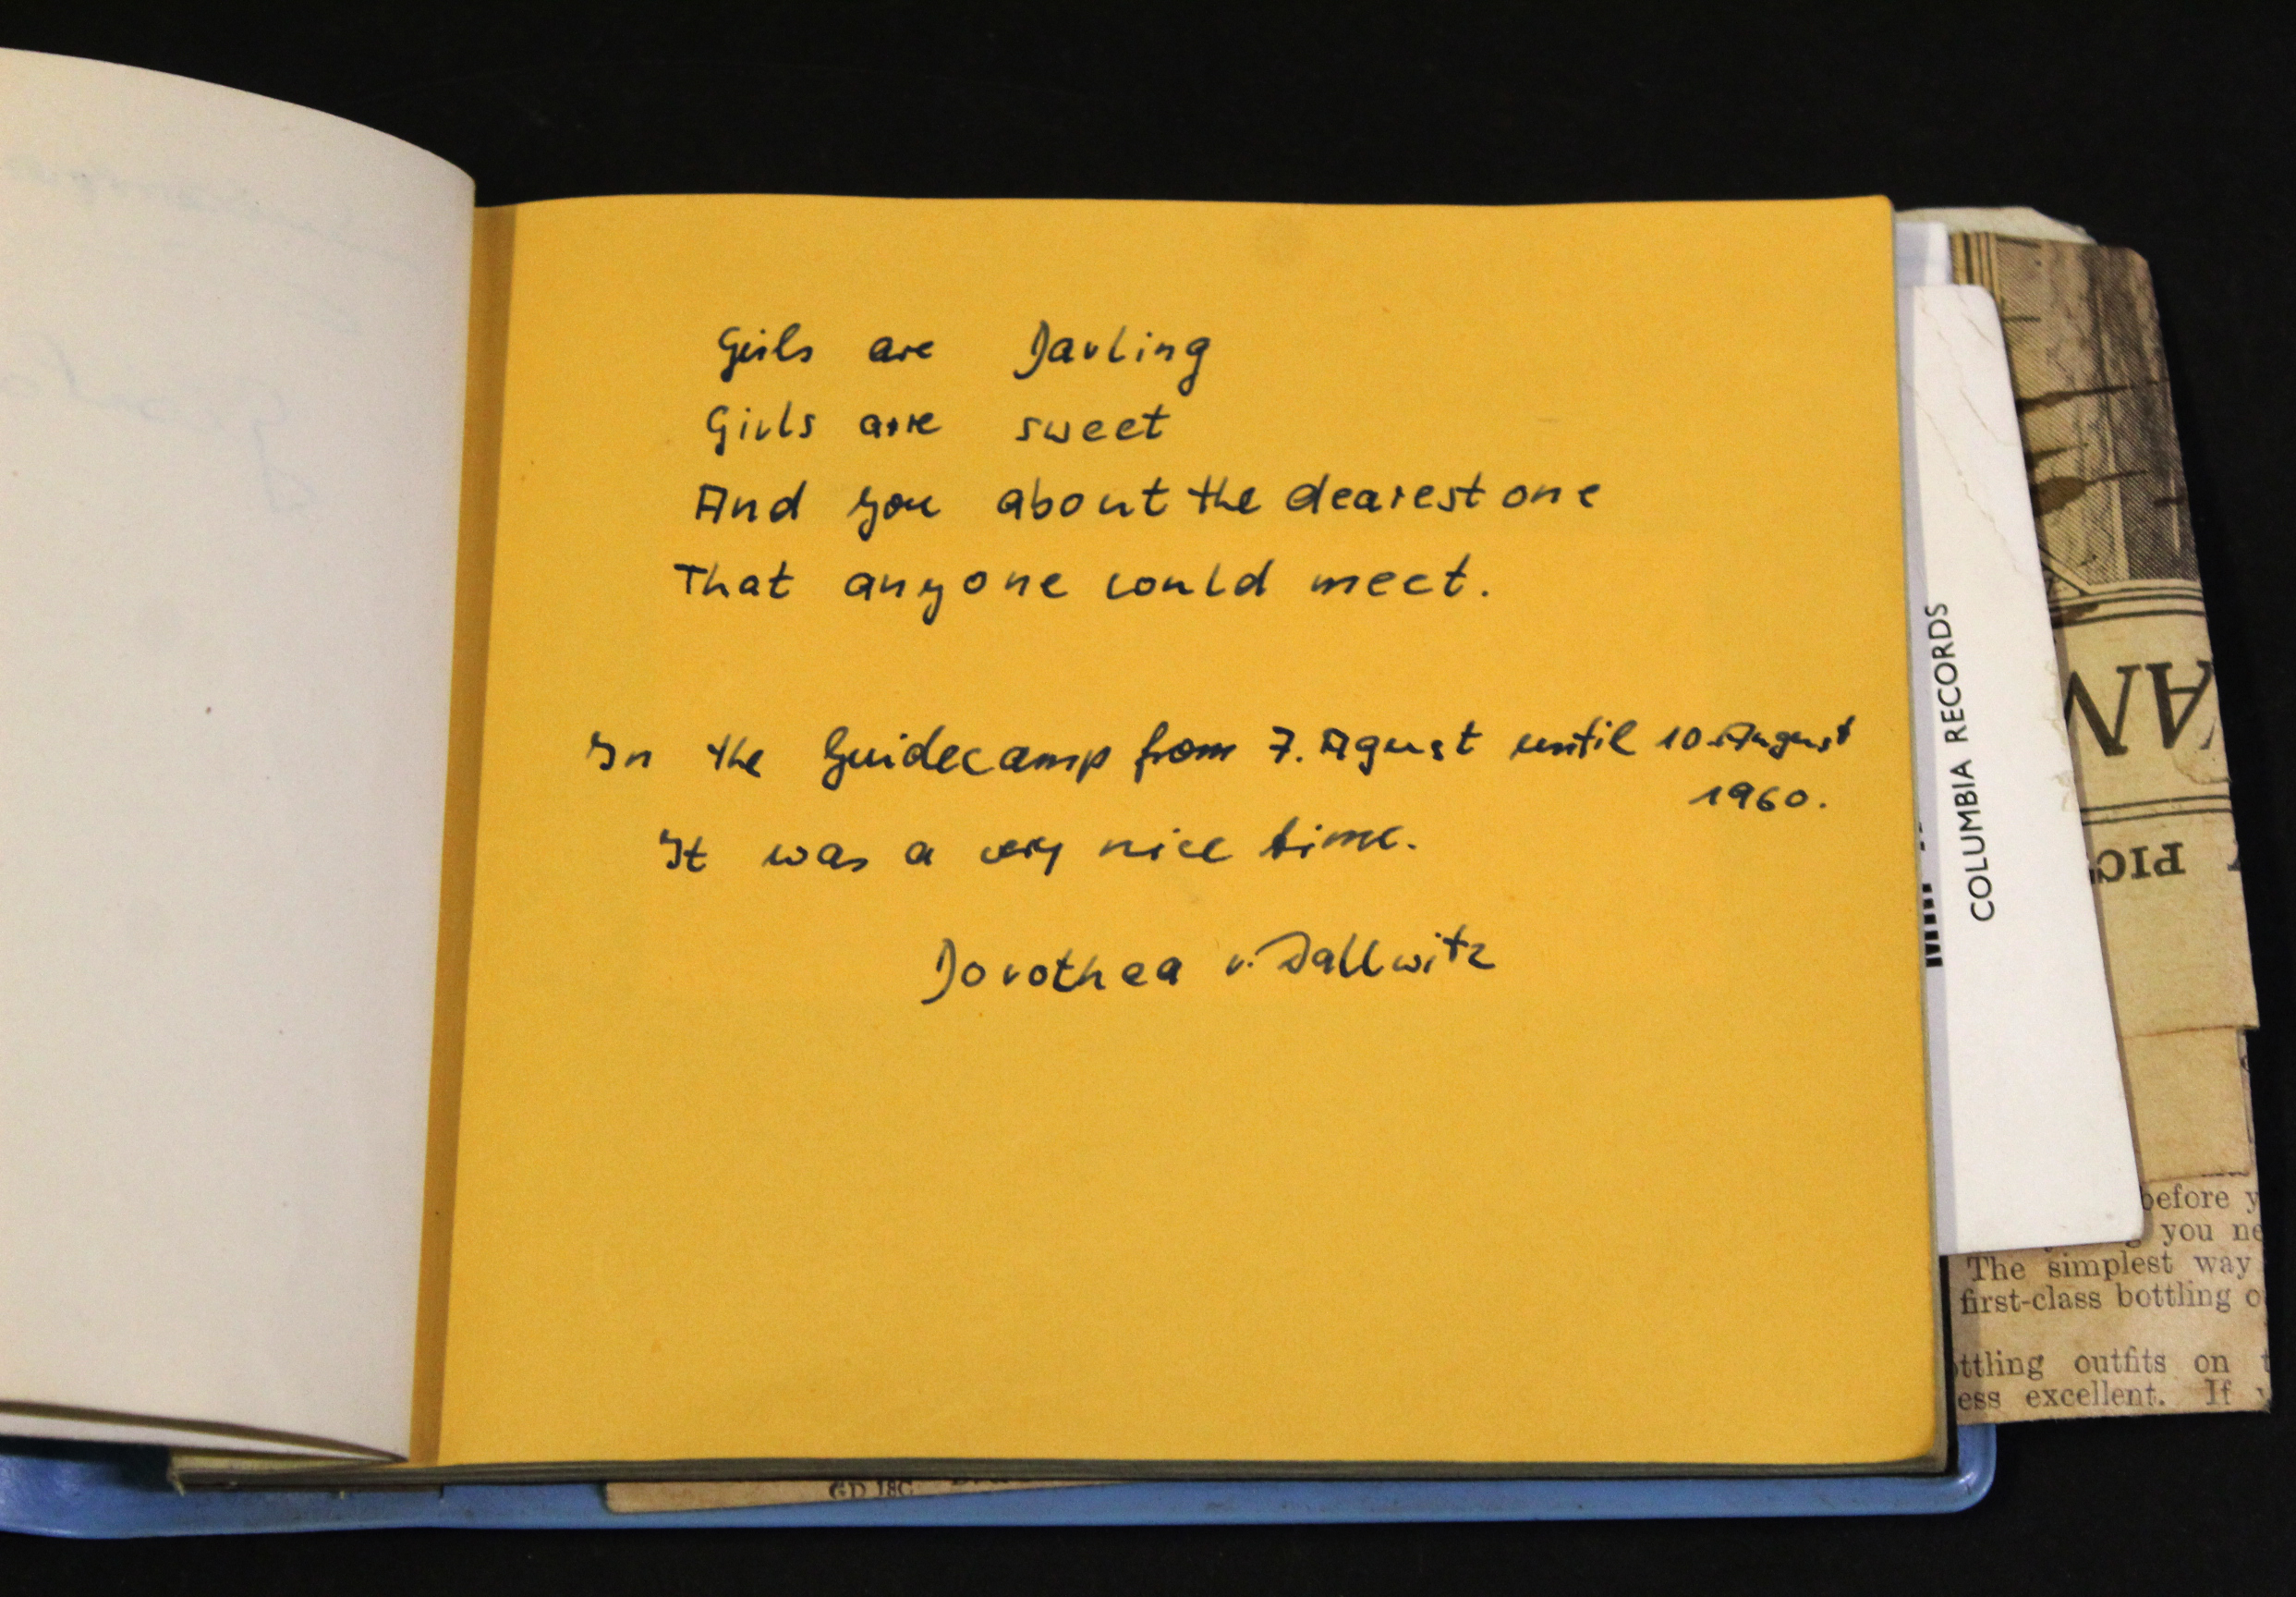 Girls are Darling
Girls are sweet
And you about the dearest one
That anyone could meet.
In the Guidecamp from 7. Agust until 10. August
1960.
It was a very nice time.
Dorothea v. Dallwitz
COLUMBIA RECORDS
PIC
before y
you ne
The simplest way
first-class bottling o
ttling outfits on t
ess excellent. If y